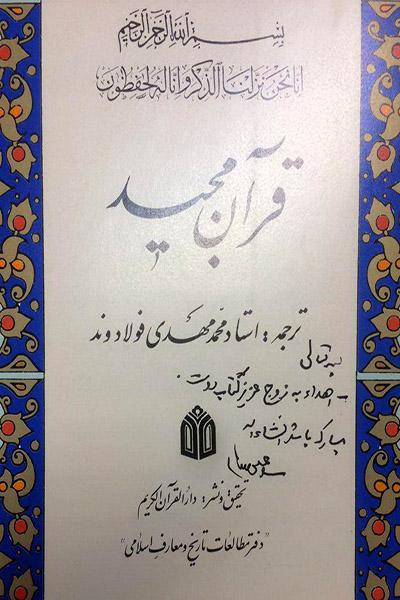 بسم الله الرحمن الرحیم
انا نحن نزلنا الذکر وانا له لحفظون
قرآن مجید
ترجمه: استاد محمد مهدی فولادوند
بسمه تعالی
- اهداء به زوج عزیز کتاب دوست.
مبارک باشد انشاءالله
تحقیق و نشر: دار القرآن الکریم
«دفتر مطالعات تاریخ و معارف اسلامی»